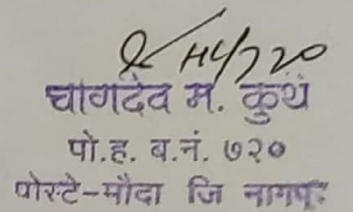 HC/720
चांगदेव म. कुथे
पो.ह. ब.नं. ७२०
पोस्टे-मौदा जि नागपुर